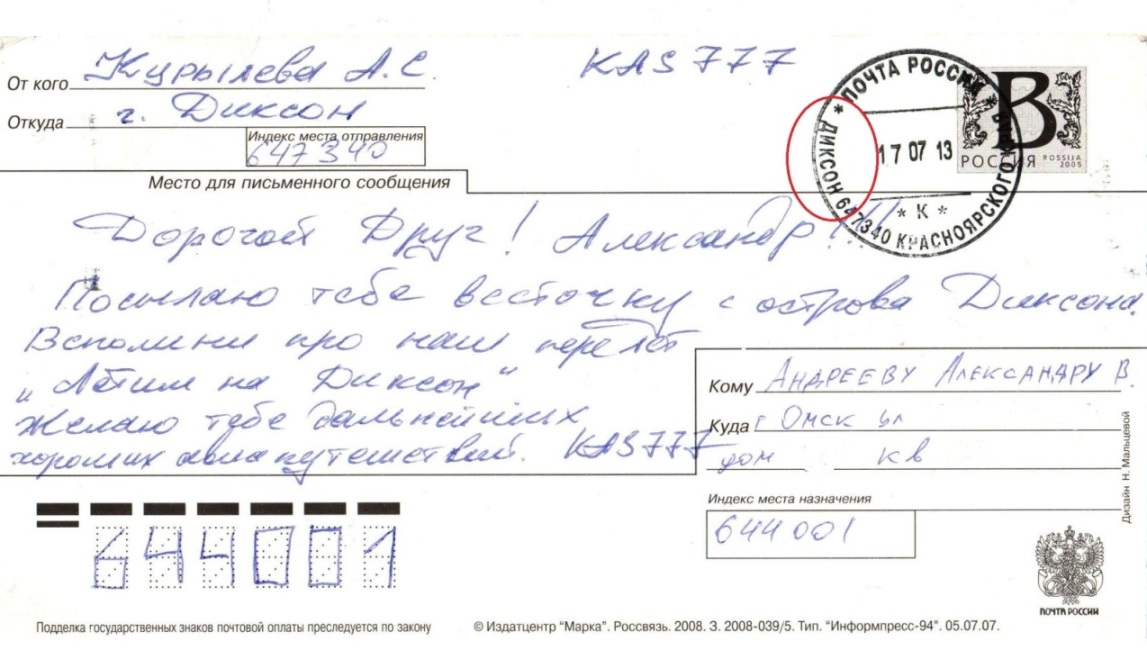 От кого Курылева А.С.
KAS 777
Откуда г. Диксон
Индекс места отправления
647340
Место для письменного сообщения
* ПОЧТА РОССИИ *
ДИКСОН 647340 КРАСНОЯРСКОГО
17 07 13
* К *
В
РОССИЯ ROSSIJA
2005
Дорогой Друг! Александр!!!
Посылаю тебе весточку с острова Диксона.
Вспомни про наш перелёт
„Летим на Диксон“
Желаю тебе дальнейших
хороших авиапутешествий. KAS 777
Кому АНДРЕЕВУ АЛЕКСАНДРУ В.
Куда г Омск ул
дом кв
Индекс места назначения
644001
644001
Дизайн Н. Мальцевой
ПОЧТА РОССИИ
Подделка государственных знаков почтовой оплаты преследуется по закону
© Издатцентр "Марка". Россвязь. 2008. З. 2008-039/5. Тип. "Информпресс-94". 05.07.07.